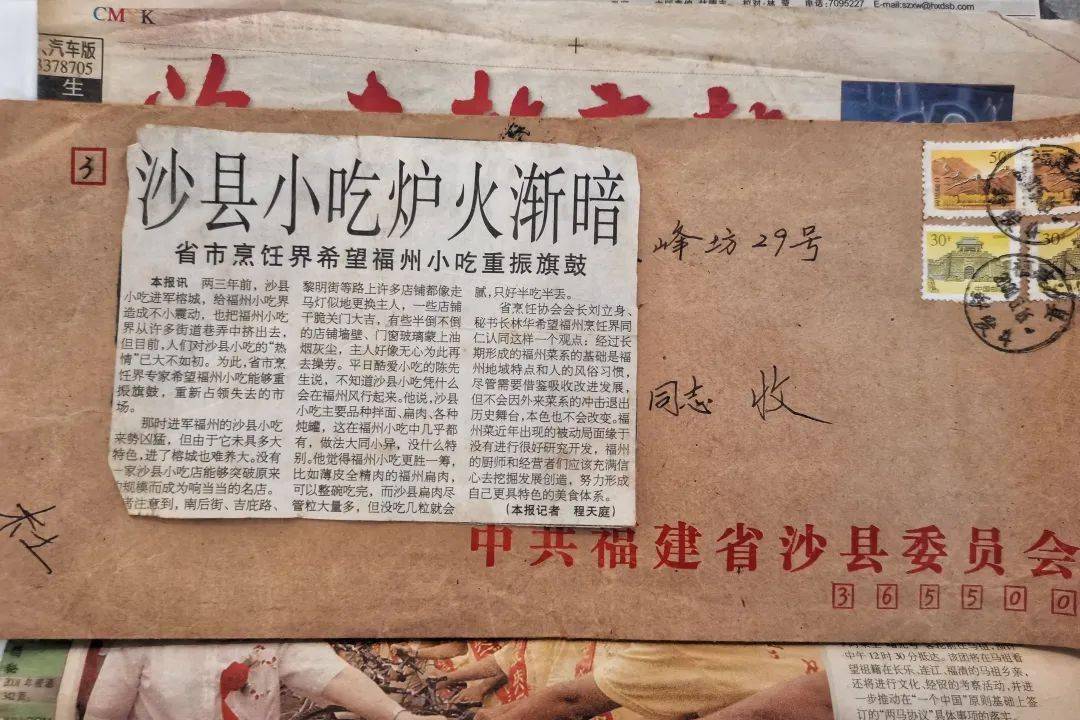 CM K
电话:7095227 E-mail:szxw@hxdsb.com
、汽车版
3378705
生
3
沙县小吃炉火渐暗
省市烹饪界希望福州小吃重振旗鼓
本报讯 两三年前，沙县
小吃进军榕城，给福州小吃界
造成不小震动，也把福州小吃
界从许多街道巷弄中挤出去，
但目前，人们对沙县小吃的“热
情”已大不如初。为此，省市烹
饪界专家希望福州小吃能够重
振旗鼓，重新占领失去的市
场。
那时进军福州的沙县小吃
来势凶猛，但由于它未具多大
特色，进了榕城也难养大。没有
一家沙县小吃店能够突破原来
的规模而成为响当当的名店。
者注意到，南后街、吉庇路、
黎明街等路上许多店铺都像走
马灯似地更换主人，一些店铺
干脆关门大吉，有些半倒不倒
的店铺墙壁、门窗玻璃蒙上油
烟灰尘，主人好像无心为此再
去操劳。平日酷爱小吃的陈先
生说，不知道沙县小吃凭什么
会在福州风行起来。他说，沙县
小吃主要品种拌面、扁肉、各种
炖罐，这在福州小吃中几乎都
有，做法大同小异，没什么特
别。他觉得福州小吃更胜一筹，
比如薄皮全精肉的福州扁肉，
可以整碗吃完，而沙县扁肉尽
管粒大量多，但没吃几粒就会
腻，只好半吃半丢。
省烹饪协会会长刘立身、
秘书长林华希望福州烹饪界同
仁认同这样一个观点：经过长
期形成的福州菜系的基础是福
州地域特点和人的风俗习惯，
尽管需要借鉴吸收改进发展，
但不会因外来菜系的冲击退出
历史舞台，本色也不会改变。福
州菜近年出现的被动局面缘于
没有进行很好研究开发，福州
的厨师和经营者们应该充满信
心去挖掘发展创造，努力形成
自己更具特色的美食体系。
（本报记者 程天庭）
峰坊29号
同志 收
50
30
30
中共福建省沙县委员会
365500
中午12时30分抵达。该团将在马祖看
望祖籍在长乐、连江、福清的马祖乡亲，
还将进行文化、经贸的考察活动，并进
一步推动在“一个中国”原则基础上签
订的“两马协议”具体事项的落实。